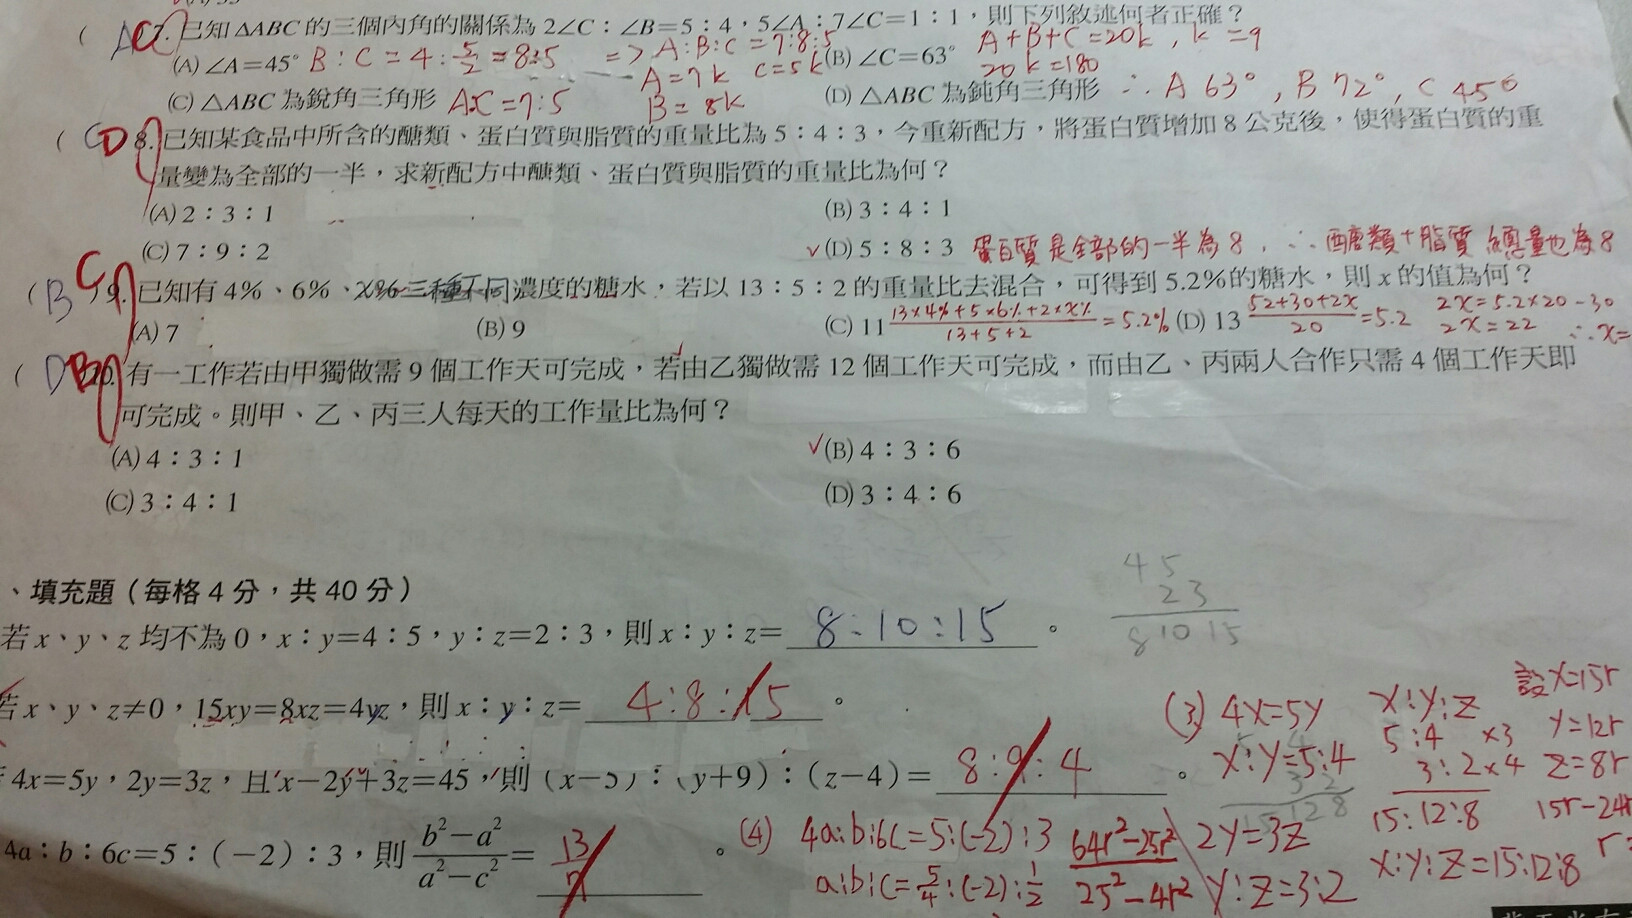 ( AC 7. 已知△ABC的三個內角的關係為2∠C：∠B=5：4，5∠A：7∠C=1：1，則下列敘述何者正確？
(A) ∠A=45° B:C=4:5/2=8:5 => A:B:C=7:8:5 (B) ∠C=63° A+B+C=20k, k=9
A=7k C=5k 20k=180
(C) △ABC為銳角三角形 A:C=7:5 B=8k (D) △ABC為鈍角三角形 ∴A 63°, B 72°, C 45°
( CD 8. 已知某食品中所含的醣類、蛋白質與脂質的重量比為5：4：3，今重新配方，將蛋白質增加8公克後，使得蛋白質的重
量變為全部的一半，求新配方中醣類、蛋白質與脂質的重量比為何？
(A) 2：3：1 (B) 3：4：1
(C) 7：9：2 ✓(D) 5：8：3 蛋白質是全部的一半為8，∴醣類+脂質總量也為8
( B C ) 9. 已知有4%、6%、x%三種不同濃度的糖水，若以13：5：2的重量比去混合，可得到5.2%的糖水，則x的值為何？
(A) 7 (B) 9 (C) 11 13×4%+5×6%+2×x%/13+5+2=5.2% (D) 13 52+30+2x/20=5.2 2x=5.2×20-30
2x=22 ∴x=
( D B 10. 有一工作若由甲獨做需9個工作天可完成，若由乙獨做需12個工作天可完成，而由乙、丙兩人合作只需4個工作天即
可完成。則甲、乙、丙三人每天的工作量比為何？
(A) 4：3：1 ✓(B) 4：3：6
(C) 3：4：1 (D) 3：4：6
、填充題（每格4分，共40分）
45
23
8 10 15
若x、y、z均不為0，x：y=4：5，y：z=2：3，則x：y：z= 8:10:15 。
若x、y、z≠0，15xy=8xz=4yz，則x：y：z= 4:8:15 。
4x=5y，2y=3z，且x−2y+3z=45，則（x−5）：（y+9）：（z−4）= 8:9:4 。
4a：b：6c=5：(−2)：3，則 b²−a²/a²−c² = 13/ 。
(3) 4x=5y
x:y=5:4
2y=3z
y:z=3:2
x:y:z
5:4 ×3
3:2 ×4
15:12:8
x:y:z=15:12:8
設x=15r
y=12r
z=8r
15r-24r
r=
(4) 4a:b:6c=5:(-2):3
a:b:c=5/4:(-2):1/2
64r²-25r²/25²-4r²